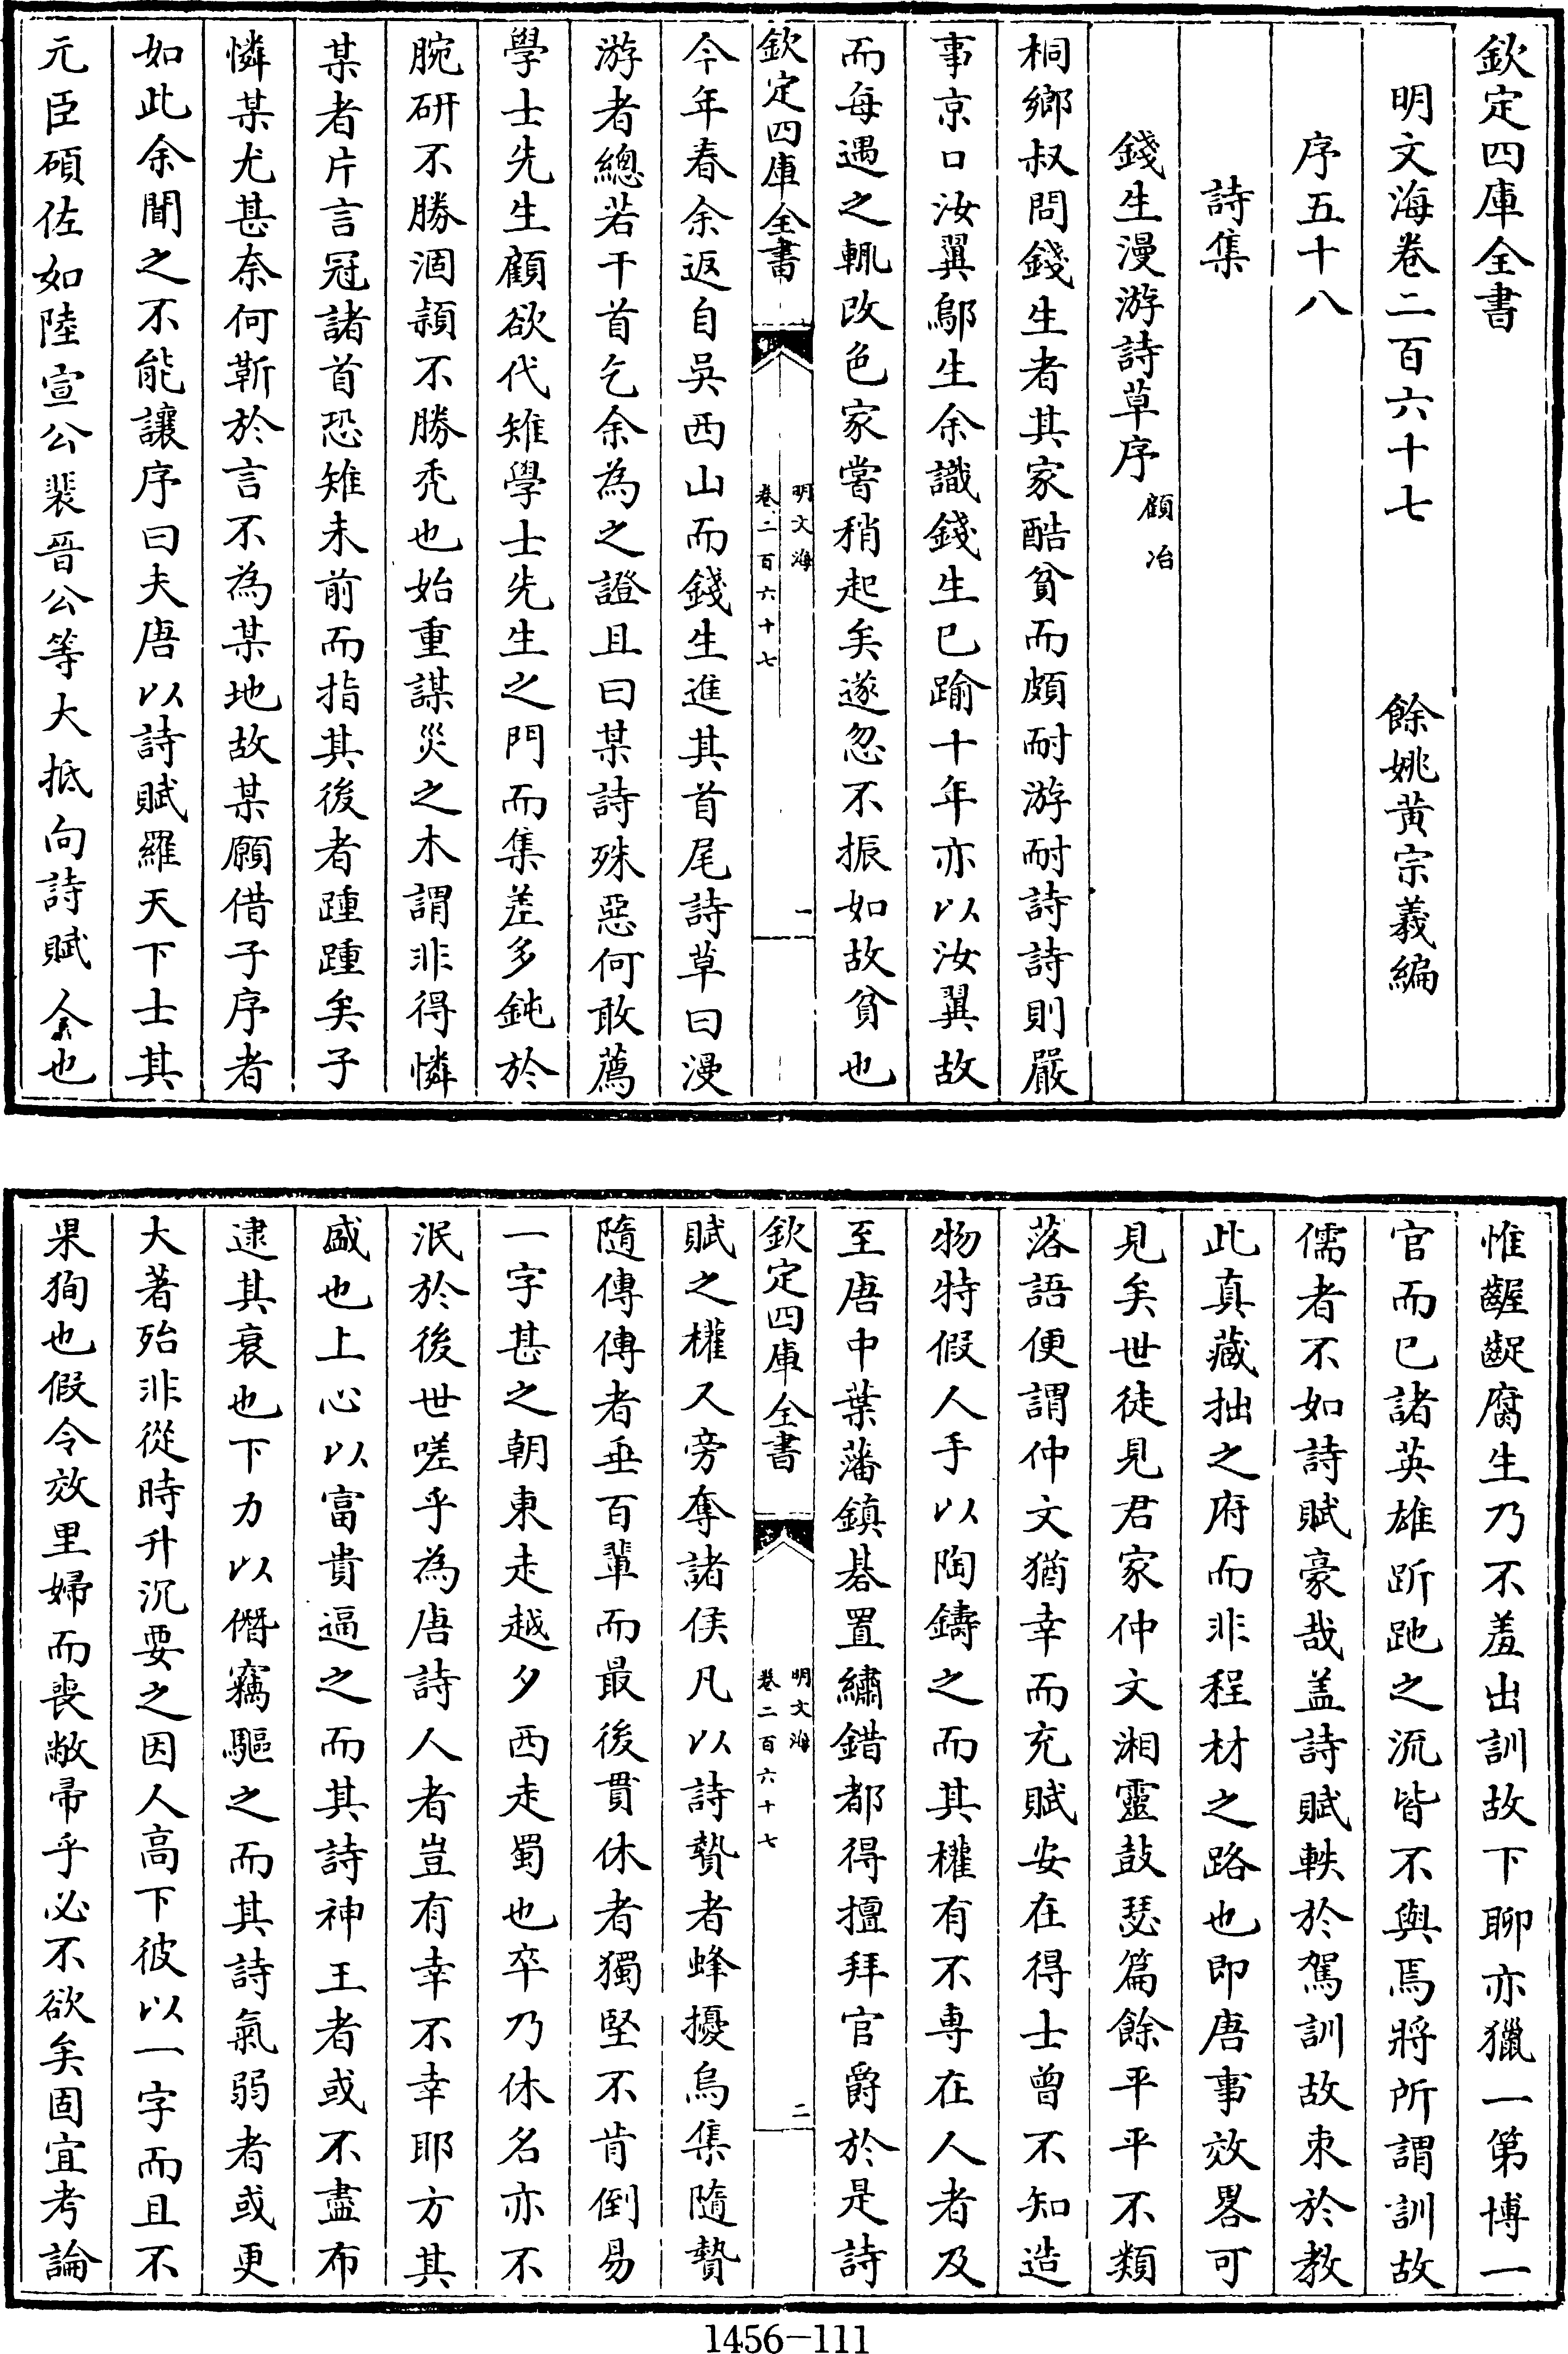 欽定四庫全書
明文海卷二百六十七
餘姚黄宗羲編
序五十八
詩集
錢生漫游詩草序
顧冶
桐鄉叔問錢生者其家酷貧而頗耐游耐詩詩則嚴
事京口汝翼鄔生余識錢生已踰十年亦以汝翼故
而每遇之輒改色家嘗稍起矣遂忽不振如故貧也
欽定四庫全書
明文海
卷二百六十七
一
今年春余返自吳西山而錢生進其首尾詩草曰漫
游者總若干首乞余為之證且曰某詩殊惡何敢薦
學士先生顧欲代雉學士先生之門而集差多鈍於
腕研不勝涸頴不勝禿也始重謀災之木謂非得憐
某者片言冠諸首恐雉未前而指其後者踵踵矣子
憐某尤甚奈何靳於言不為某地故某願借子序者
如此余聞之不能讓序曰夫唐以詩賦羅天下士其
元臣碩佐如陸宣公裴晉公等大抵向詩賦人也
惟齷齪腐生乃不羞出訓故下聊亦獵一第博一
官而已諸英雄跅跎之流皆不與焉將所謂訓故
儒者不如詩賦豪哉盖詩賦軼於駕訓故朿於教
此真藏拙之府而非程材之路也即唐事效畧可
見矣世徒見君家仲文湘靈鼓瑟篇餘平平不類
落語便謂仲文猶幸而充賦安在得士曾不知造
物特假人手以陶鑄之而其權有不専在人者及
至唐中葉藩鎮碁置繡錯都得擅拜官爵於是詩
欽定四庫全書
明文海
卷二百六十七
二
賦之權又旁奪諸侯凡以詩贄者蜂擾烏集隨贄
隨傳傳者垂百輩而最後貫休者獨堅不肯倒易
一字甚之朝東走越夕西走蜀也卒乃休名亦不
泯於後世嗟乎為唐詩人者豈有幸不幸耶方其
盛也上心以富貴逼之而其詩神王者或不盡布
逮其衰也下力以僭竊驅之而其詩氣弱者或更
大著殆非從時升沉要之因人高下彼以一字而且不
果狥也假令效里婦而丧敝帚乎必不欲矣固宜考論
1456-111